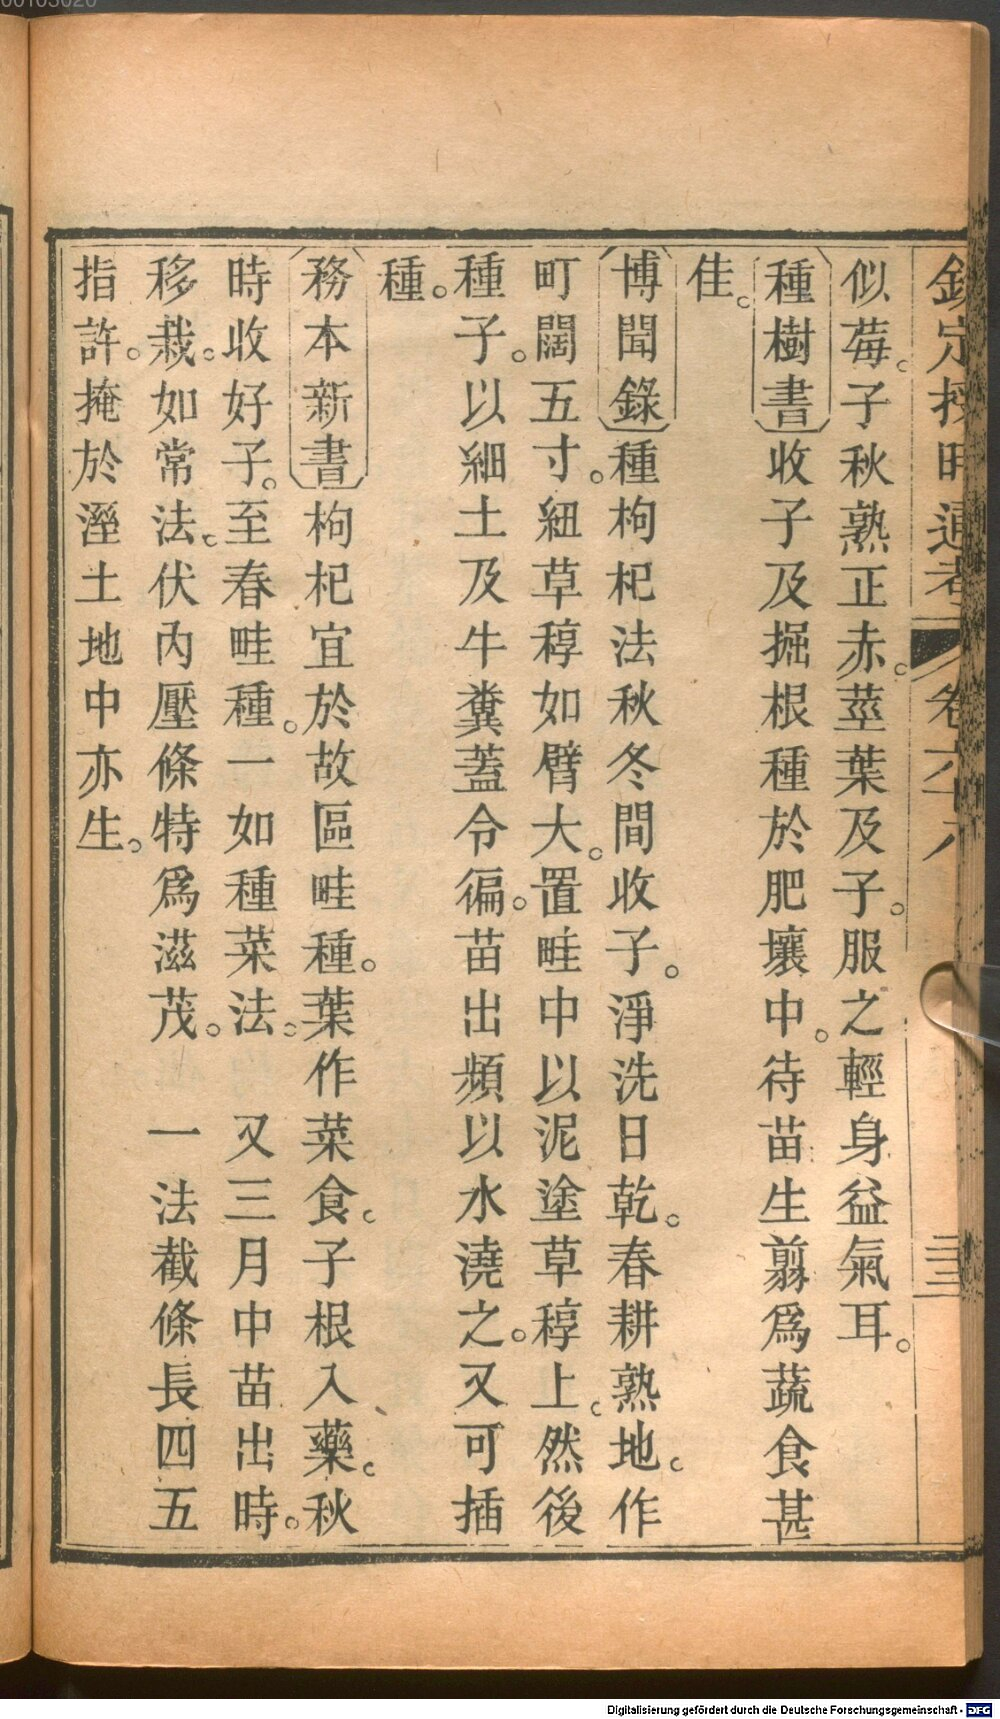 欽定授時通考 卷六十八 三三
似莓。子秋熟正赤。莖葉及子。服之輕身益氣耳。
種樹書收子及掘根種於肥壤中。待苗生翦爲蔬食甚
佳。
博聞錄種枸杞法秋冬間收子。淨洗日乾。春耕熟地。作
町闊五寸。紐草稕如臂大。置畦中以泥塗草稕上。然後
種子。以細土及牛糞蓋令徧。苗出頻以水澆之。又可插
種。
務本新書枸杞宜於故區畦種。葉作菜食。子根入藥。秋
時收好子。至春畦種。一如種菜法。 又三月中苗出時。
移栽。如常法。伏內壓條特爲滋茂。 一法截條長四五
指許。掩於溼土地中亦生。
Digitalisierung gefördert durch die Deutsche Forschungsgemeinschaft - DFG